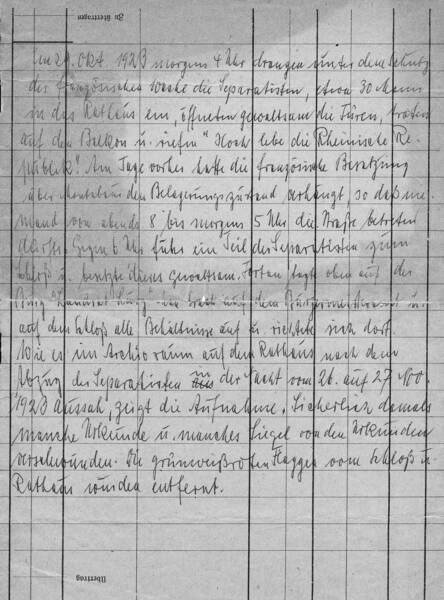 Zu übertragen
Am 24. Okt 1923 morgens 4 Uhr drangen unter dem Schutz
der französischen Wache die Separatisten, etwa 30 Mann
in das Rathaus ein, öffneten gewaltsam die Türen, traten
auf den Balkon u. riefen "Hoch lebe die Rheinische Re-
publick"! Am Tage vorher hatte die französische Besatzung
über Montabaur den Belagerungszustand verhängt, so daß nie-
mand von abends 8 bis morgens 5 Uhr die Straße betreten
durfte. Gegen 6 Uhr fuhr ein Teil der Separatisten zum
Schloß u. besetzte dieses gewaltsam. Fortan tagte oben auf der
auf dem Bürgermeisteramt u.
auf dem Schloß alle Behältnisse auf u. richtete sich dort
Wie es im Archivraum auf dem Rathaus nach dem
Abzug der Separatisten in der Nacht vom 26. auf 27 Nov.
1923 aussah, zeigt die Aufnahme. Sicherlich damals
manche Urkunde u. manches Siegel von den Urkunden
verschwunden. Die grünweißroten Flaggen vom Schloß u.
Rathaus wurden entfernt.
Übertrag